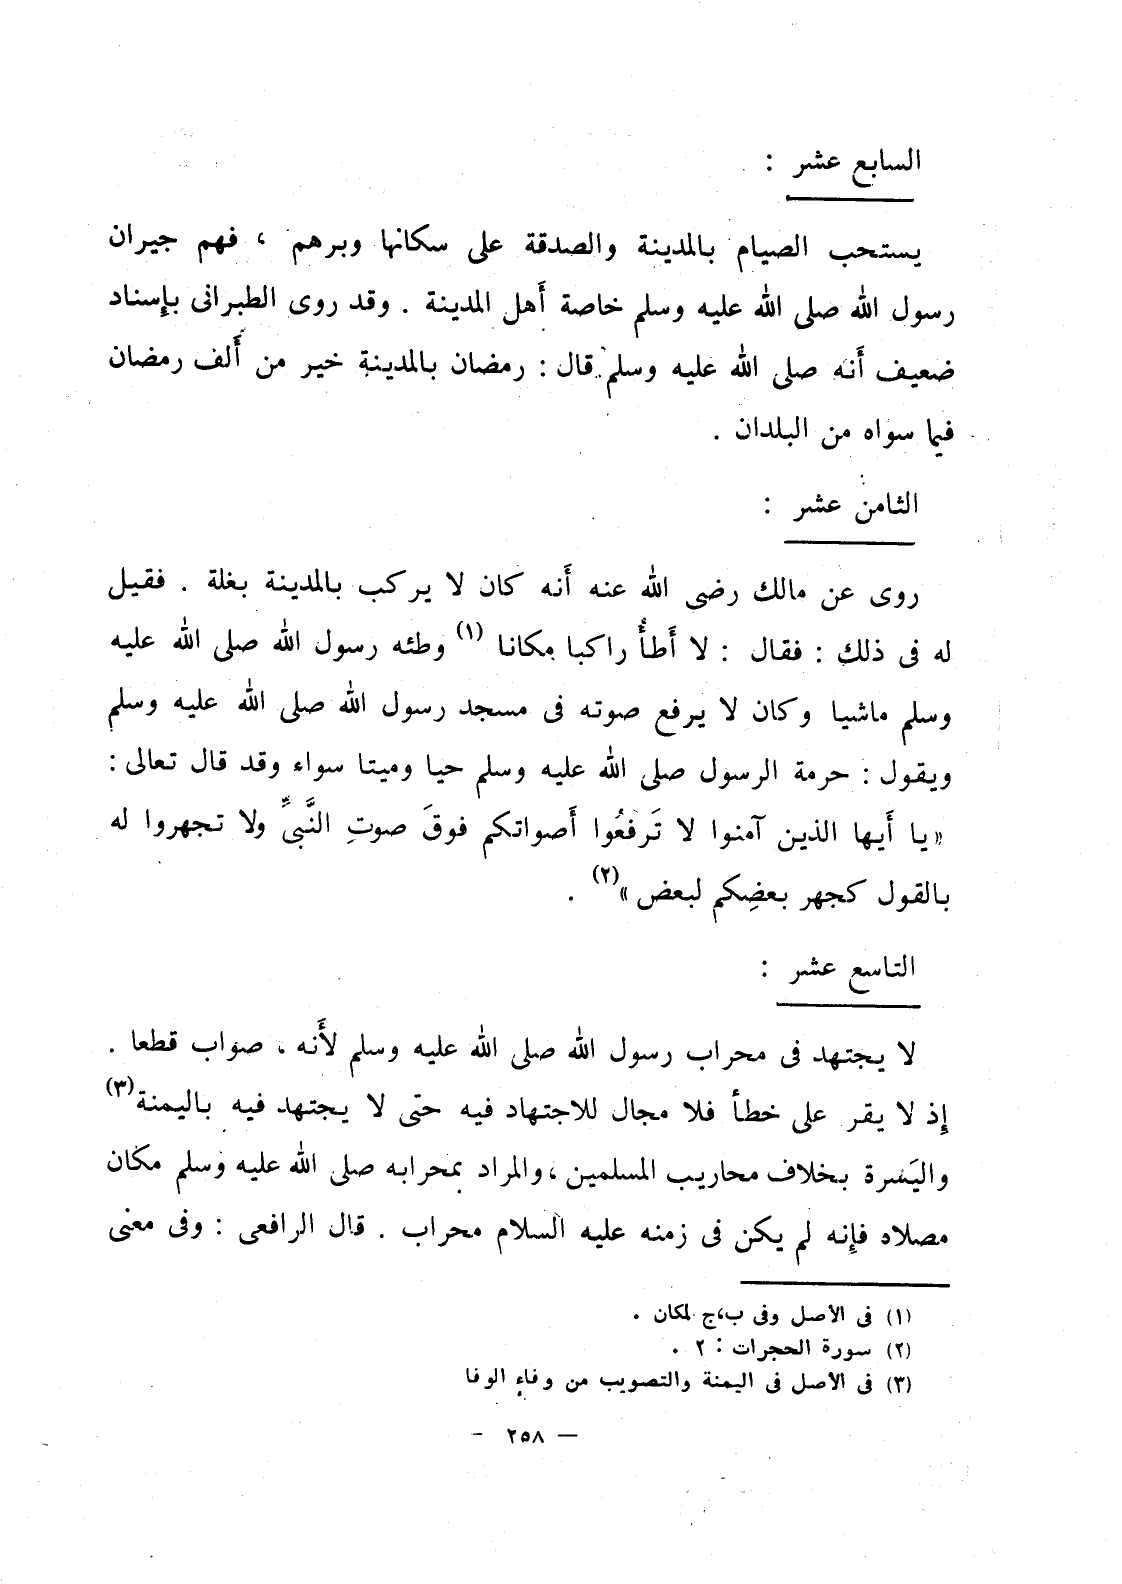 السابع عشر :
يستحب الصيام بالمدينة والصدقة على سكانها وبرهم ، فهم جيران
رسول الله صلى الله عليه وسلم خاصة أهل المدينة . وقد روى الطبرانى بإسناد
ضعيف أنه صلى الله عليه وسلم قال : رمضان بالمدينة خير من ألف رمضان
فيما سواه من البلدان .
الثامن عشر :
روى عن مالك رضى الله عنه أنه كان لا يركب بالمدينة بغلة . فقيل
له فى ذلك : فقال : لا أطأُ راكبا مكانا (١) وطئه رسول الله صلى الله عليه
وسلم ماشيا وكان لا يرفع صوته فى مسجد رسول الله صلى الله عليه وسلم
ويقول : حرمة الرسول صلى الله عليه وسلم حيا وميتا سواء وقد قال تعالى :
«يا أيها الذين آمنوا لا تَرفعُوا أصواتكم فوقَ صوتِ النَّبىِّ ولا تجهروا له
بالقول كجهر بعضِكم لبعض »(٢) .
التاسع عشر :
لا يجتهد فى محراب رسول الله صلى الله عليه وسلم لأنه ، صواب قطعا .
إذ لا يقر على خطأ فلا مجال للاجتهاد فيه حتى لا يجتهد فيه باليمنة(٣)
واليَسرة بخلاف محاريب المسلمين ، والمراد بمحرابه صلى الله عليه وسلم مكان
مصلاه فإنه لم يكن فى زمنه عليه السلام محراب . قال الرافعى : وفى معنى
(١) فى الأصل وفى ب،ج لمكان .
(٢) سورة الحجرات : ٢ .
(٣) فى الأصل فى اليمنة والتصويب من وفاء الوفا
— ٢٥٨ -